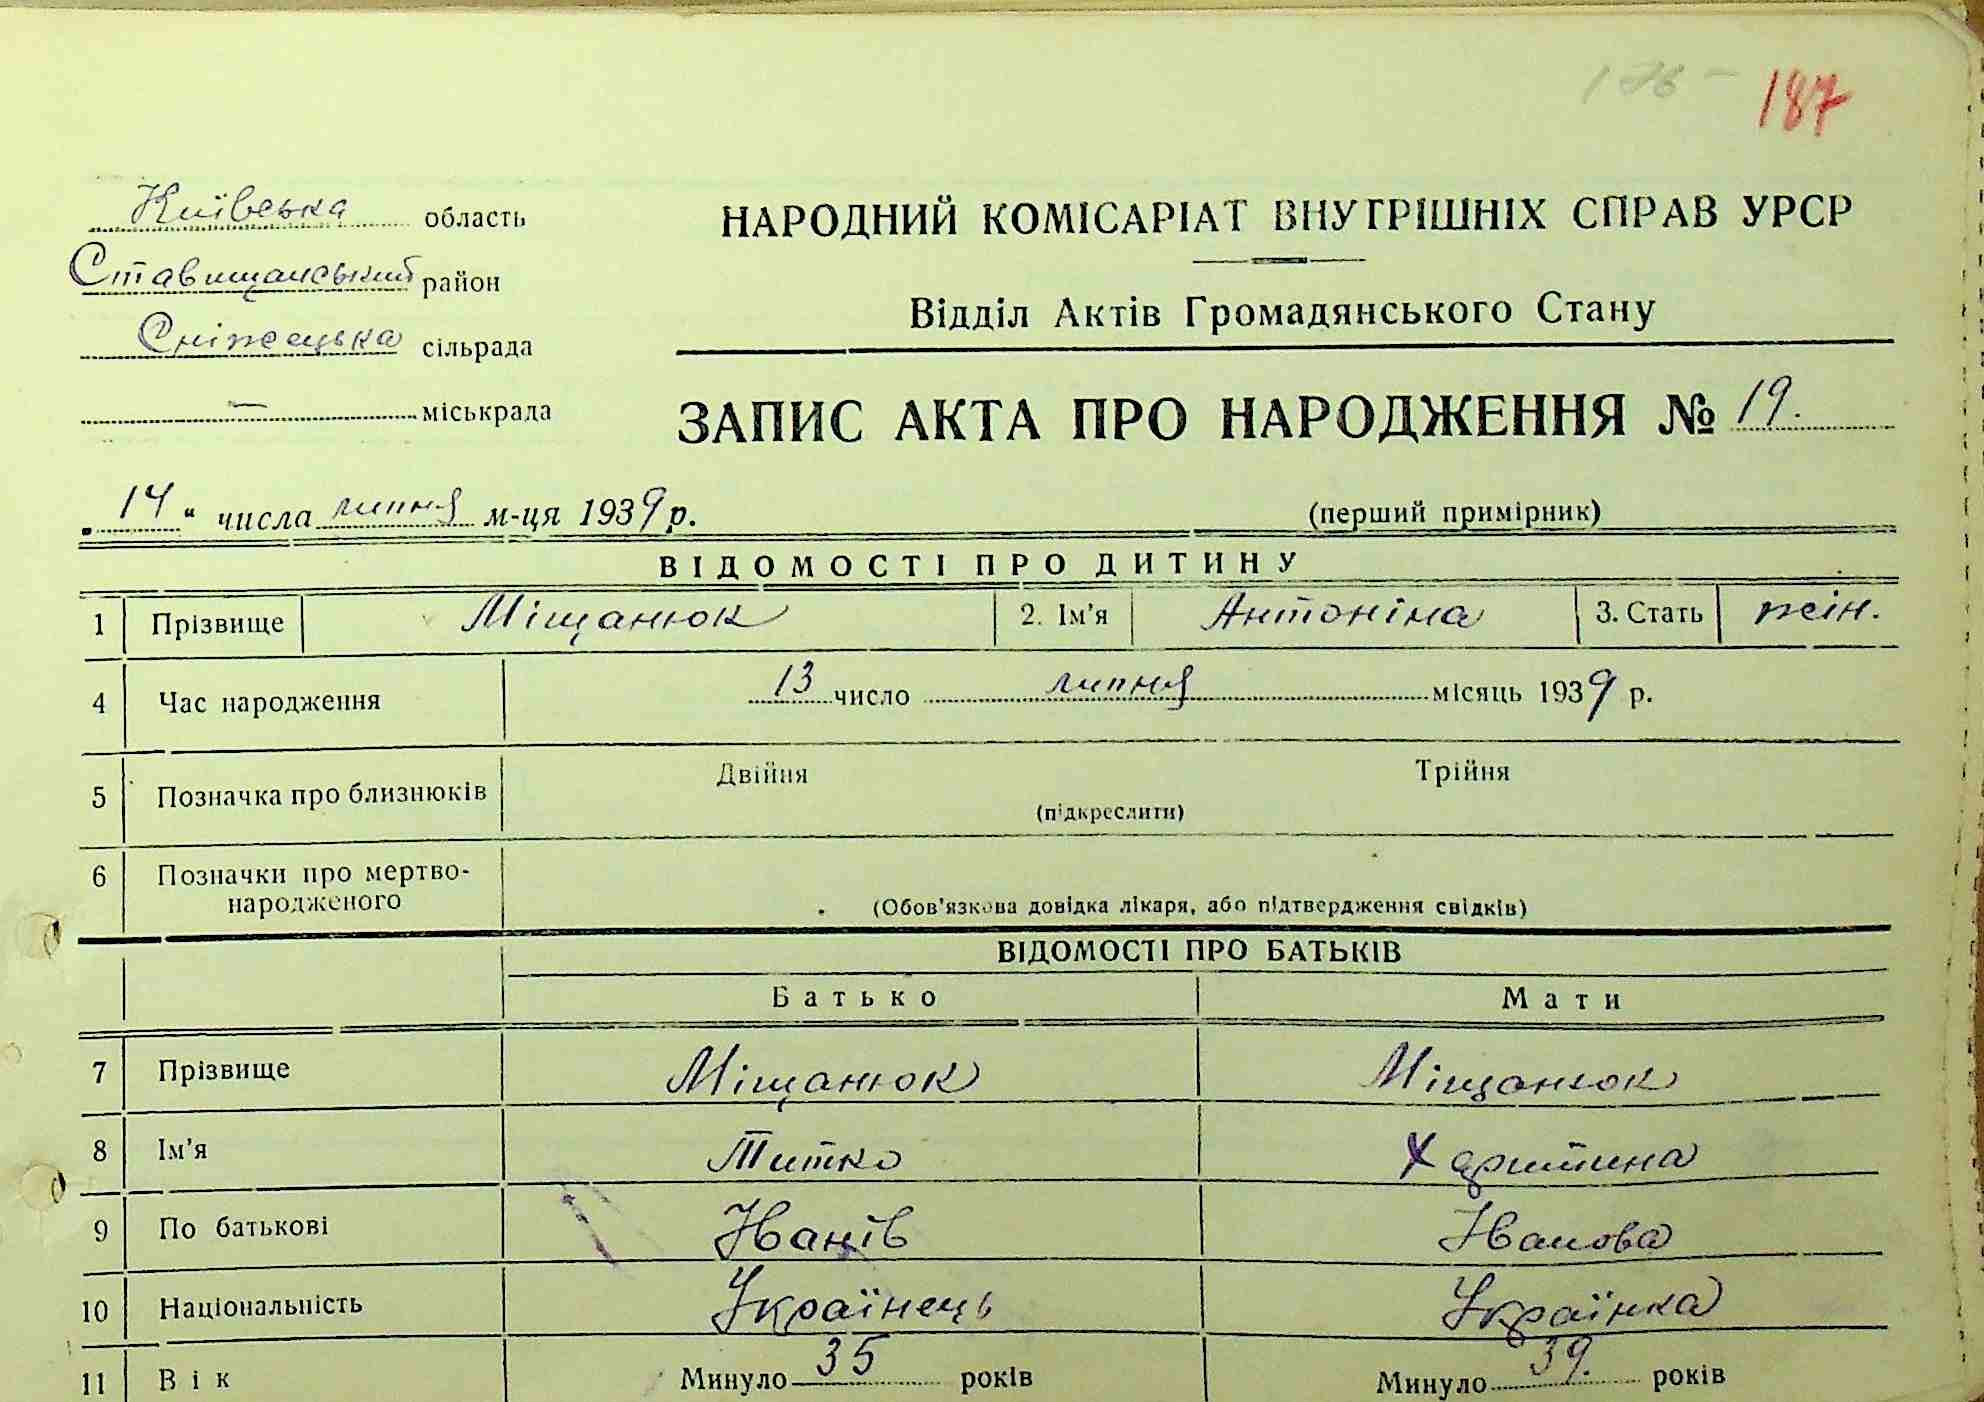 187
Київська область
Ставищанський район
Сніжецька сільрада
— міськрада
НАРОДНИЙ КОМІСАРІАТ ВНУТРІШНІХ СПРАВ УРСР
Відділ Актів Громадянського Стану
ЗАПИС АКТА ПРО НАРОДЖЕННЯ № 19.
„14“ числа липня м-ця 1939 р.
(перший примірник)
ВІДОМОСТІ ПРО ДИТИНУ
1 Прізвище Міщанюк 2. Ім'я Антоніна 3. Стать жін.
4 Час народження 13 число липня місяць 1939 р.
5 Позначка про близнюків Двійня Трійня
(підкреслити)
6 Позначки про мертво-
народженого
(Обов'язкова довідка лікаря, або підтвердження свідків)
ВІДОМОСТІ ПРО БАТЬКІВ
Батько Мати
7 Прізвище Міщанюк Міщанюк
8 Ім'я Титко Харитина
9 По батькові Іванів Іванова
10 Національність Українець Українка
11 Вік Минуло 35 років Минуло 39. років